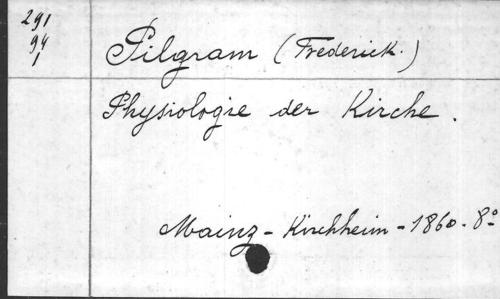 291
94
1
Pilgram (Frederick.)
Physiologie der Kirche.
Mainz - Kirchheim - 1860. 8°